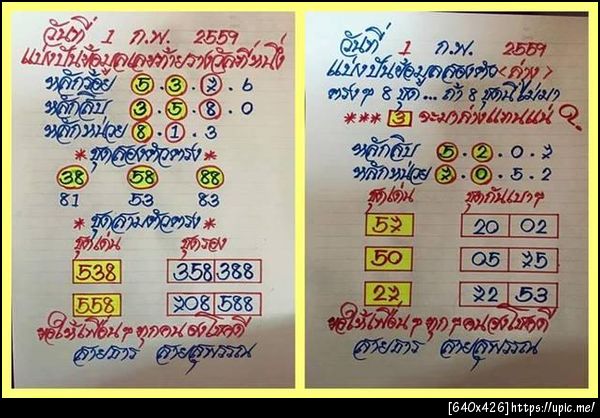 วันที่ 1 ก.พ. 2559
แบ่งปันข้อมูลเลขท้ายรางวัลที่หนึ่ง
หลักร้อย 5.3.7.6
หลักสิบ 3.5.8.0
หลักหน่วย 8.1.3
* ชุดสองตัวตรง *
38 58 88
81 53 83
* ชุดสามตัวตรง *
ชุดเด่น ชุดรอง
538 358 388
558 708 588
ขอให้เพื่อนๆทุกคนจงโชคดี
สายธาร สายสุพรรณ
วันที่ 1 ก.พ. 2559
แบ่งปันข้อมูลสองตัว <ล่าง>
ตรงๆ 8 ชุด... ถ้า 8 ชุดนี้ไม่มา
*** 3 จะมาล่างแทนแน่
หลักสิบ 5.2.0.7
หลักหน่วย 7.0.5.2
ชุดเด่น ชุดกันเบาๆ
57 20 02
50 05 75
27 72 53
ขอให้เพื่อนๆทุกๆคนจงโชคดี
สายธาร สายสุพรรณ
[640x426]https://upic.me/